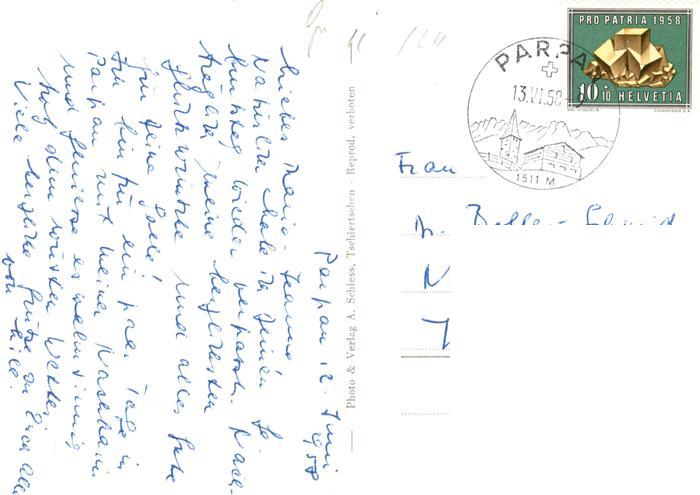 Parpan 12. Juni
1958
Liebes Maria-
Natürlich habe ich Deinen Ge-
burtstag wieder verpasst. Nach-
träglich meine herzlichsten
Glückwünsche und alles Gute
für Deine
Ich bin für ein paar Tage in
Parpan mit meiner
und geniesse es
trotz dem Wetter.
Viele herzliche Grüsse an Euch alle
von
Photo & Verlag A. Schiess, Tschiertschen - Reprod. verboten
PRO PATRIA 1958
10+10 HELVETIA
COURVOISIER S.A.
PARPAN
13.VI.58-9
1511 M
Frau